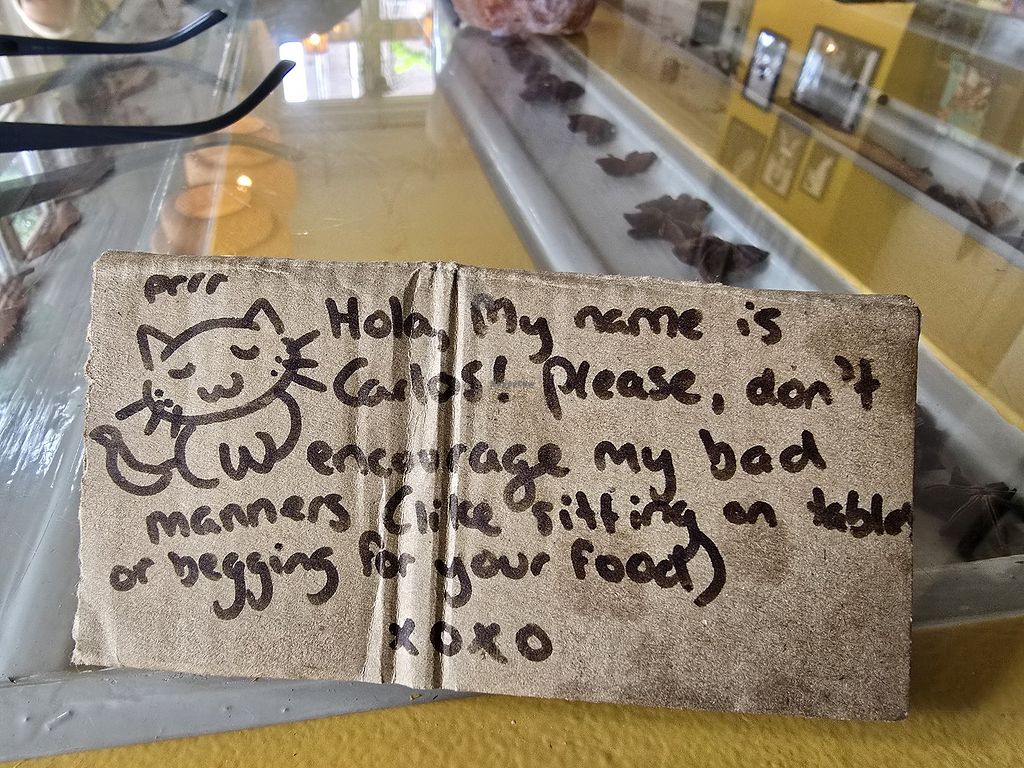 prrr
Hola, My name is
Carlos! please, don't
encourage my bad
manners (like sitting on tables
or begging for your food)
xoxo